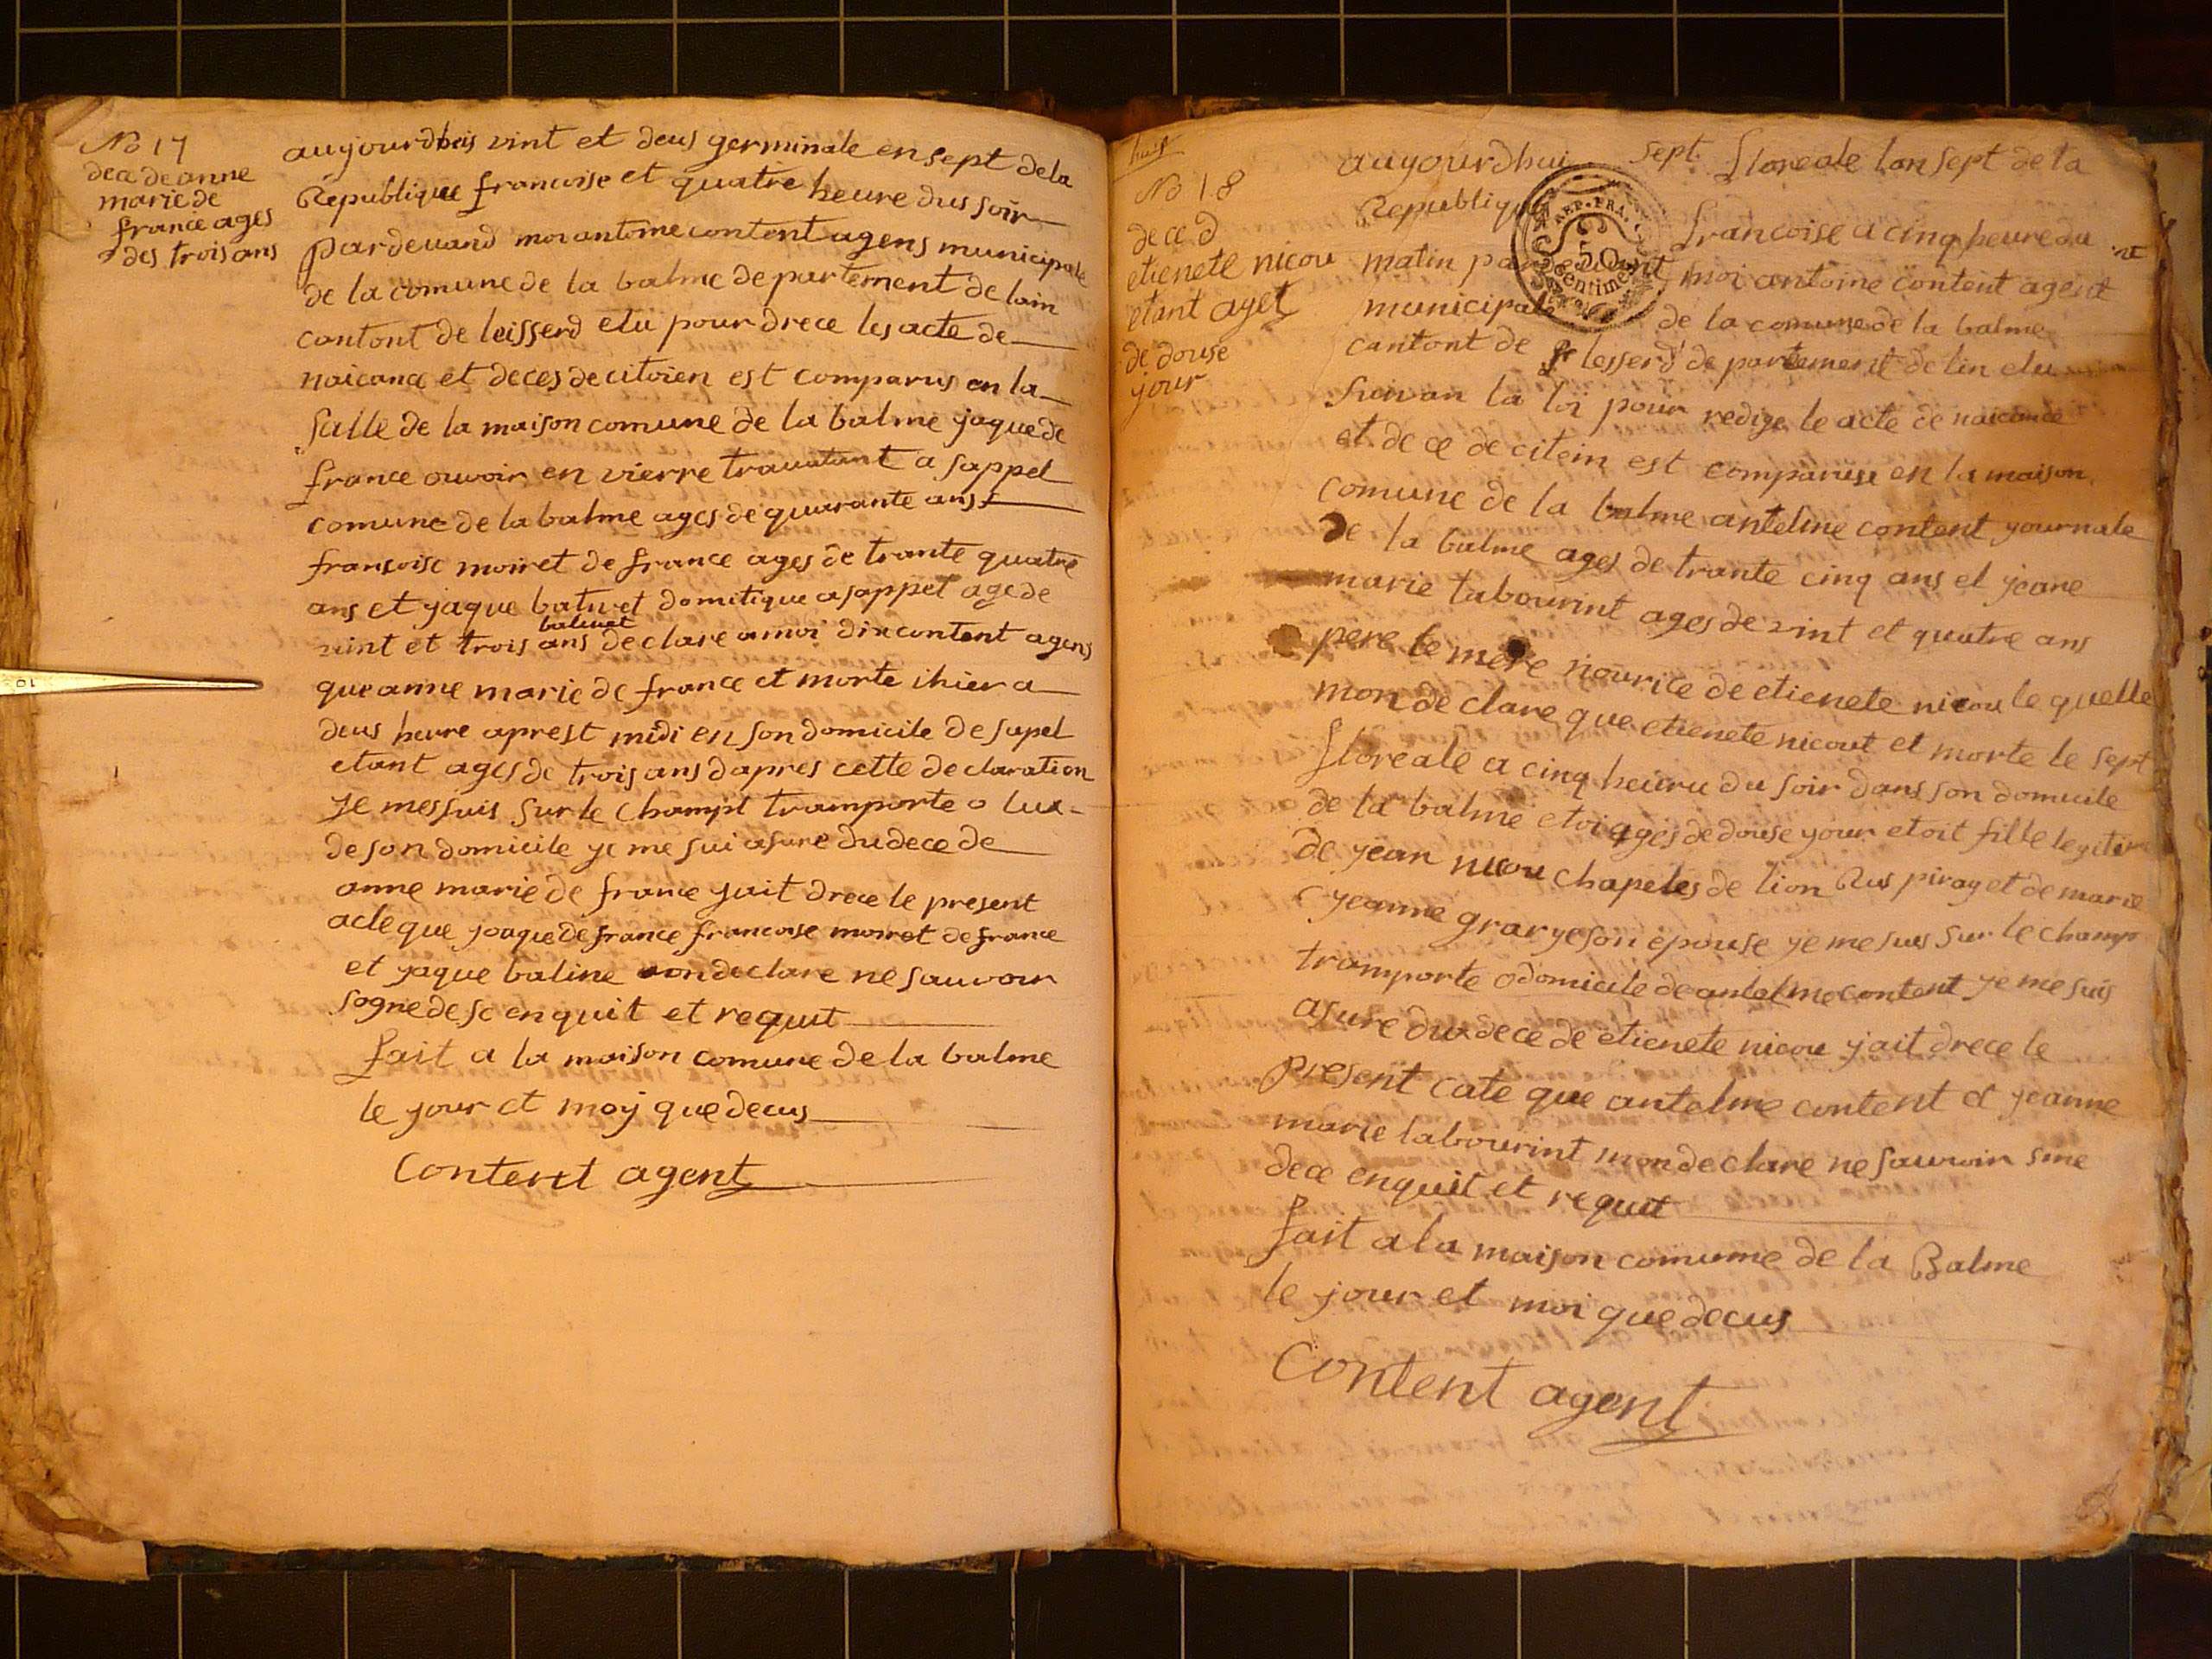 No 17
dece de anne
marie de
france ages
des trois ans
aujourdhuis vint et deus germinale en sept de la
Republique francoise et quatre heure dus soir
pardevand moi antoine content agens municipale
de la comune de la balme departement de lain
contont de leisserd elu pour drece les acte de
naicance et deces de citoien est comparus en la
salle de la maison comune de la balme jaque de
france ouvoir en vierre travatant a sappel
comune de la balme ages de quarante ans
francoise moiret de france ages de trante quatre
ans et jaque batnet domitique a sappel age de
balinet
vint et trois ans declare a moi dix content agens
que anne marie de france et morte ihier a
deus heure aprest midi en son domicile de sapel
etant ages de trois ans dapres cette declaration
Je messuis sur le champt tramporte o lux
de son domicile je me sui asure du dece de
anne marie de france jait drece le present
acte que jaque de france francoise moiret de france
et jaque baline mon declare ne sauvoir
sogne de se enquit et requit
fait a la maison comune de la balme
le jour et moy que decus
Content agent
huit
No 18
dece d
etienete nicou
etant aget
de douse
jour
aujourdhui sept floreale lan sept de la
Republique francoise a cinq heure du
REP. FRA.
50
Centimes
matin pardevant moi antoine content agent
municipale de la comune de la balme
cantont de lesserd departement de lin elu
suivan la loi pour redige le acte de naicance
et dece de citoin est comparuse en la maison
comune de la balme antelme content journale
de la balme ages de trante cinq ans et jeane
marie labourint ages de vint et quatre ans
pere le mere nourice de etienete nicou le quelle
mon declare que etienete nicout et morte le sept
floreale a cinq heuru du soir dans son domicile
de la balme etoi ages de douse jour etoit fille legitime
de jean nicou chapeles de lion Rus piray et de marie
jeanne grarye son epouse je me suis sur le champ
tramporte o domicile de antelme content je me suis
asure du dece de etienete nicou jait drece le
present cate que antelme content et jeanne
marie labourint mon declare ne sauvoir sine
dece enquit et requit
fait a la maison comune de la Balme
le jour et moi que decus
Content agent